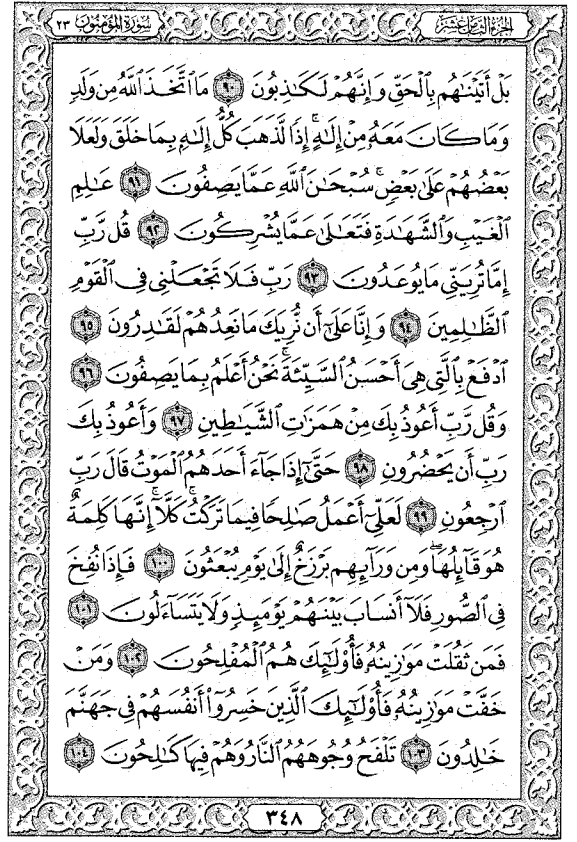 الجزء الثامن عشر
سورة المؤمنون ٢٣
بَلْ أَتَيْنَٰهُم بِٱلْحَقِّ وَإِنَّهُمْ لَكَٰذِبُونَ ٩٠ مَا ٱتَّخَذَ ٱللَّهُ مِن وَلَدٍ
وَمَا كَانَ مَعَهُۥ مِنْ إِلَٰهٍ ۚ إِذًا لَّذَهَبَ كُلُّ إِلَٰهٍۭ بِمَا خَلَقَ وَلَعَلَا
بَعْضُهُمْ عَلَىٰ بَعْضٍ ۚ سُبْحَٰنَ ٱللَّهِ عَمَّا يَصِفُونَ ٩١ عَٰلِمِ
ٱلْغَيْبِ وَٱلشَّهَٰدَةِ فَتَعَٰلَىٰ عَمَّا يُشْرِكُونَ ٩٢ قُل رَّبِّ
إِمَّا تُرِيَنِّى مَا يُوعَدُونَ ٩٣ رَبِّ فَلَا تَجْعَلْنِى فِى ٱلْقَوْمِ
ٱلظَّٰلِمِينَ ٩٤ وَإِنَّا عَلَىٰٓ أَن نُّرِيَكَ مَا نَعِدُهُمْ لَقَٰدِرُونَ ٩٥
ٱدْفَعْ بِٱلَّتِى هِىَ أَحْسَنُ ٱلسَّيِّئَةَ ۚ نَحْنُ أَعْلَمُ بِمَا يَصِفُونَ ٩٦
وَقُل رَّبِّ أَعُوذُ بِكَ مِنْ هَمَزَٰتِ ٱلشَّيَٰطِينِ ٩٧ وَأَعُوذُ بِكَ
رَبِّ أَن يَحْضُرُونِ ٩٨ حَتَّىٰٓ إِذَا جَآءَ أَحَدَهُمُ ٱلْمَوْتُ قَالَ رَبِّ
ٱرْجِعُونِ ٩٩ لَعَلِّىٓ أَعْمَلُ صَٰلِحًا فِيمَا تَرَكْتُ ۚ كَلَّآ ۚ إِنَّهَا كَلِمَةٌ
هُوَ قَآئِلُهَا ۖ وَمِن وَرَآئِهِم بَرْزَخٌ إِلَىٰ يَوْمِ يُبْعَثُونَ ١٠٠ فَإِذَا نُفِخَ
فِى ٱلصُّورِ فَلَآ أَنسَابَ بَيْنَهُمْ يَوْمَئِذٍ وَلَا يَتَسَآءَلُونَ ١٠١
فَمَن ثَقُلَتْ مَوَٰزِينُهُۥ فَأُو۟لَٰٓئِكَ هُمُ ٱلْمُفْلِحُونَ ١٠٢ وَمَنْ
خَفَّتْ مَوَٰزِينُهُۥ فَأُو۟لَٰٓئِكَ ٱلَّذِينَ خَسِرُوٓا۟ أَنفُسَهُمْ فِى جَهَنَّمَ
خَٰلِدُونَ ١٠٣ تَلْفَحُ وُجُوهَهُمُ ٱلنَّارُ وَهُمْ فِيهَا كَٰلِحُونَ ١٠٤
٣٤٨